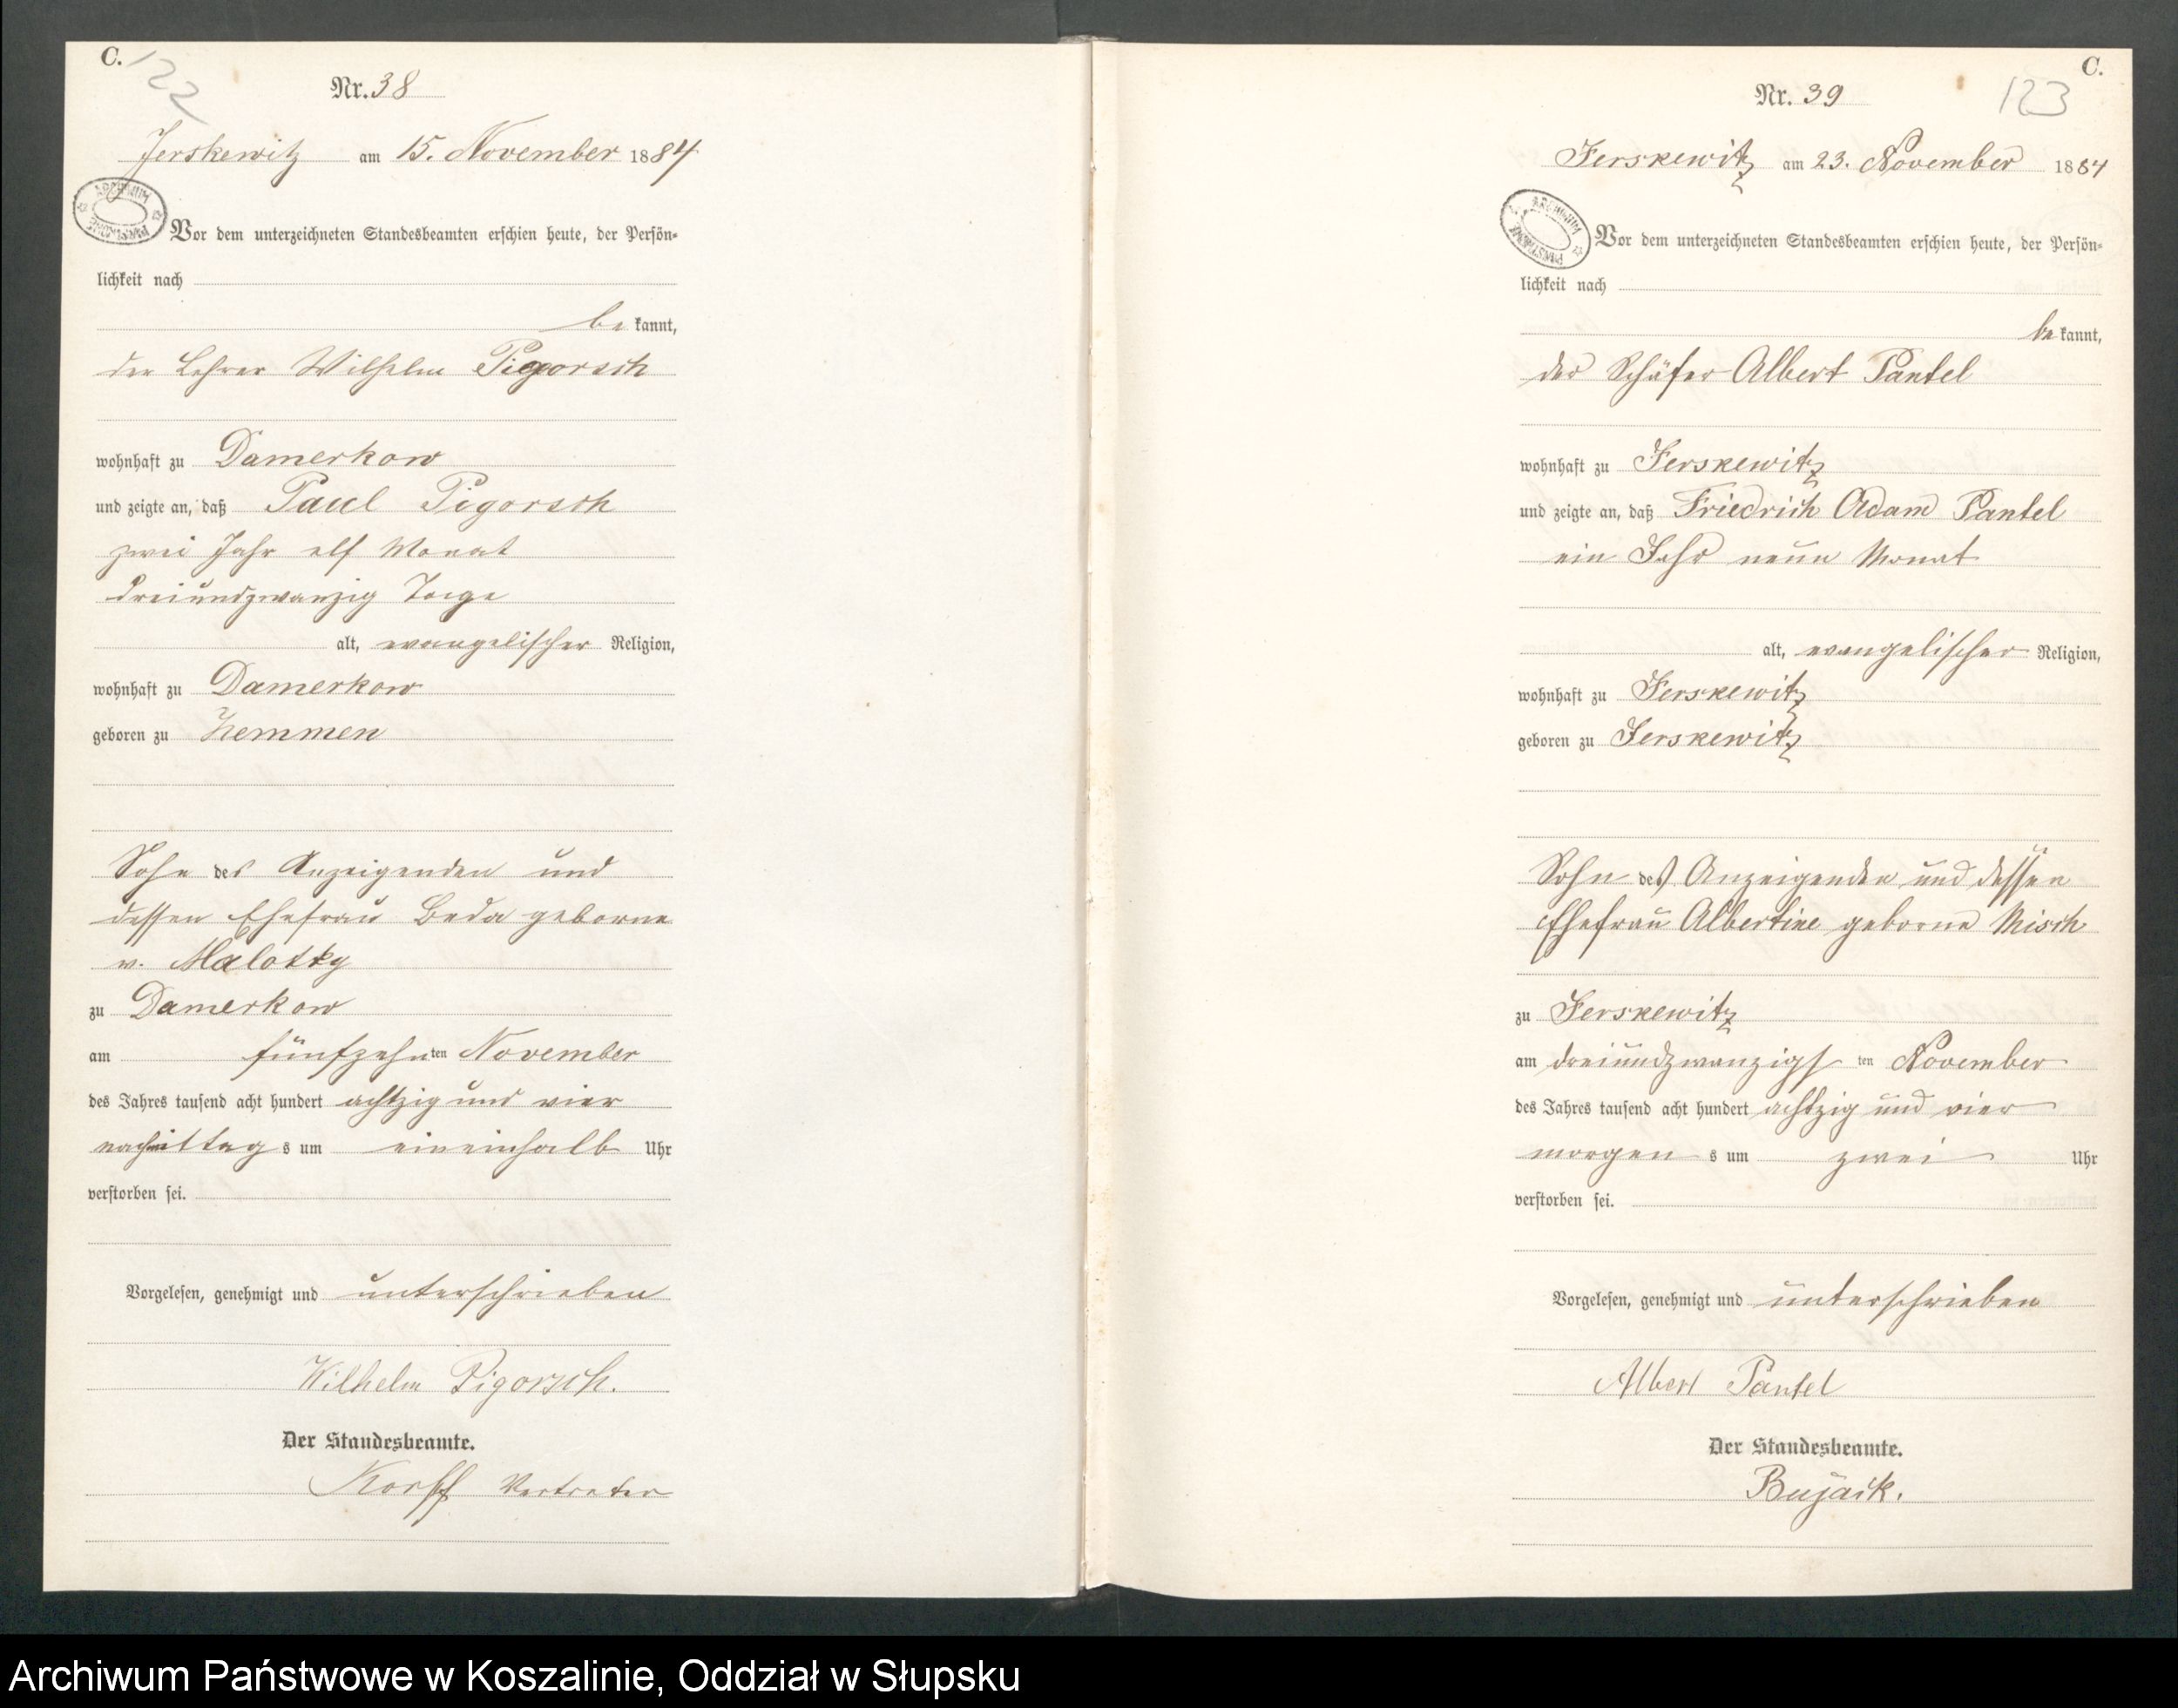 C.
122
Nr. 38
Jerskewitz am 15. November 1884
Vor dem unterzeichneten Standesbeamten erschien heute, der Persön-
lichkeit nach
be kannt,
der Lehrer Wilhelm Pigorsch
wohnhaft zu Damerkow
und zeigte an, daß Paul Pigorsch
zwei Jahr elf Monat
dreiundzwanzig Tage
alt, evangelischer Religion,
wohnhaft zu Damerkow
geboren zu Zemmen
Sohn des Anzeigenden und
dessen Ehefrau Beda geborne
v. Malotky
zu Damerkow
am fünfzehn ten November
des Jahres tausend acht hundert achtzig und vier
nachmittag s um eineinhalb Uhr
verstorben sei.
Vorgelesen, genehmigt und unterschrieben
Wilhelm Pigorsch.
Der Standesbeamte.
Korff Vertreter
C.
123
Nr. 39
Jerskewitz am 23. November 1884
ARCHIWUM
Vor dem unterzeichneten Standesbeamten erschien heute, der Persön-
lichkeit nach
be kannt,
der Schäfer Albert Pantel
wohnhaft zu Jerskewitz
und zeigte an, daß Friedrich Adam Pantel
ein Jahr neun Monat
alt, evangelischer Religion,
wohnhaft zu Jerskewitz
geboren zu Jerskewitz
Sohn des Anzeigenden und dessen
Ehefrau Albertine geborne Misch
zu Jerskewitz
am dreiundzwanzigs ten November
des Jahres tausend acht hundert achtzig und vier
morgen s um zwei Uhr
verstorben sei.
Vorgelesen, genehmigt und unterschrieben
Albert Pantel
Der Standesbeamte.
Bujack.
Archiwum Państwowe w Koszalinie, Oddział w Słupsku